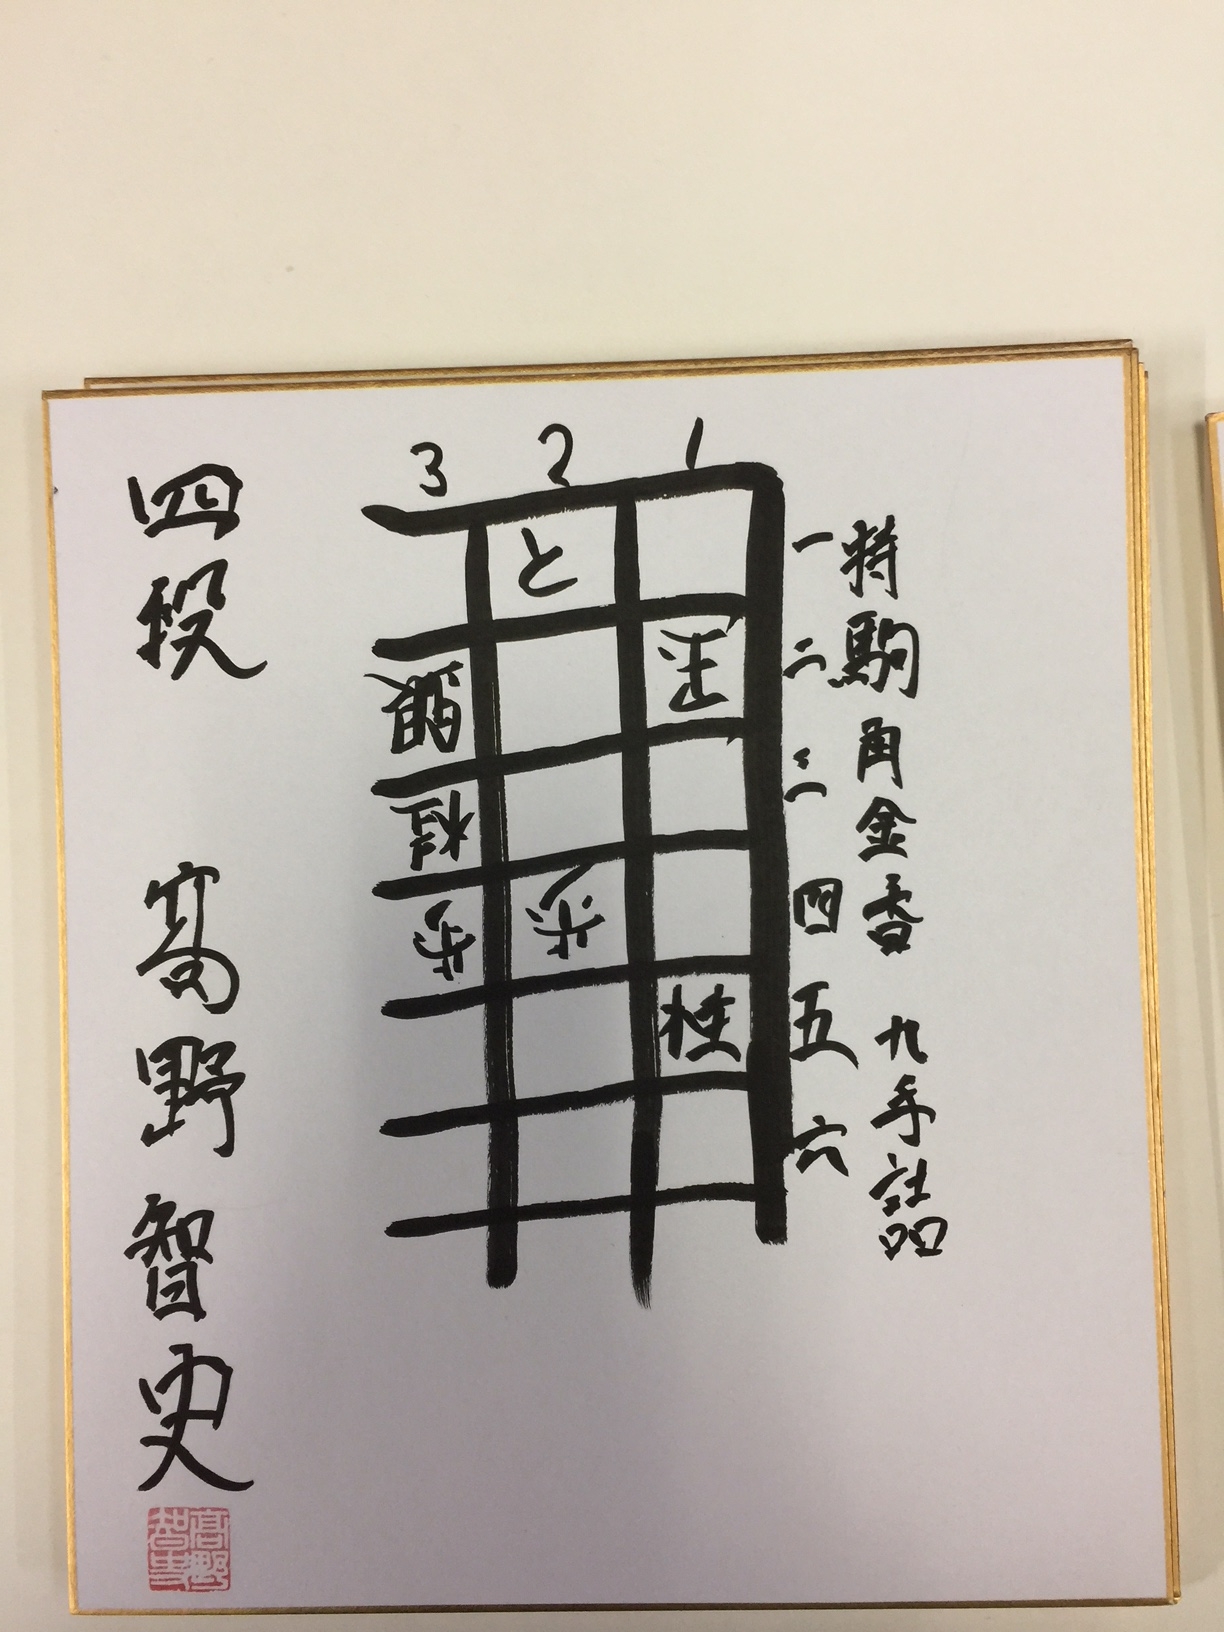 持駒 角金香 九手詰
3 2 1
と 一
銀 玉 二
桂 三
歩 歩 四
桂 五
六
四段 髙野智史
髙野智史